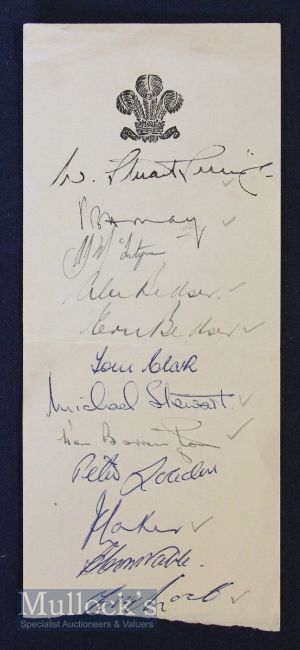 W. Stuart Surridge
P B H May
A J W McIntyre
Alec Bedser
Eric Bedser
Tom Clark
Michael Stewart.
Ken Barrington
Peter Loader
J Laker
Tony Lock
Mullock's
Specialist Auctioneers & Valuers